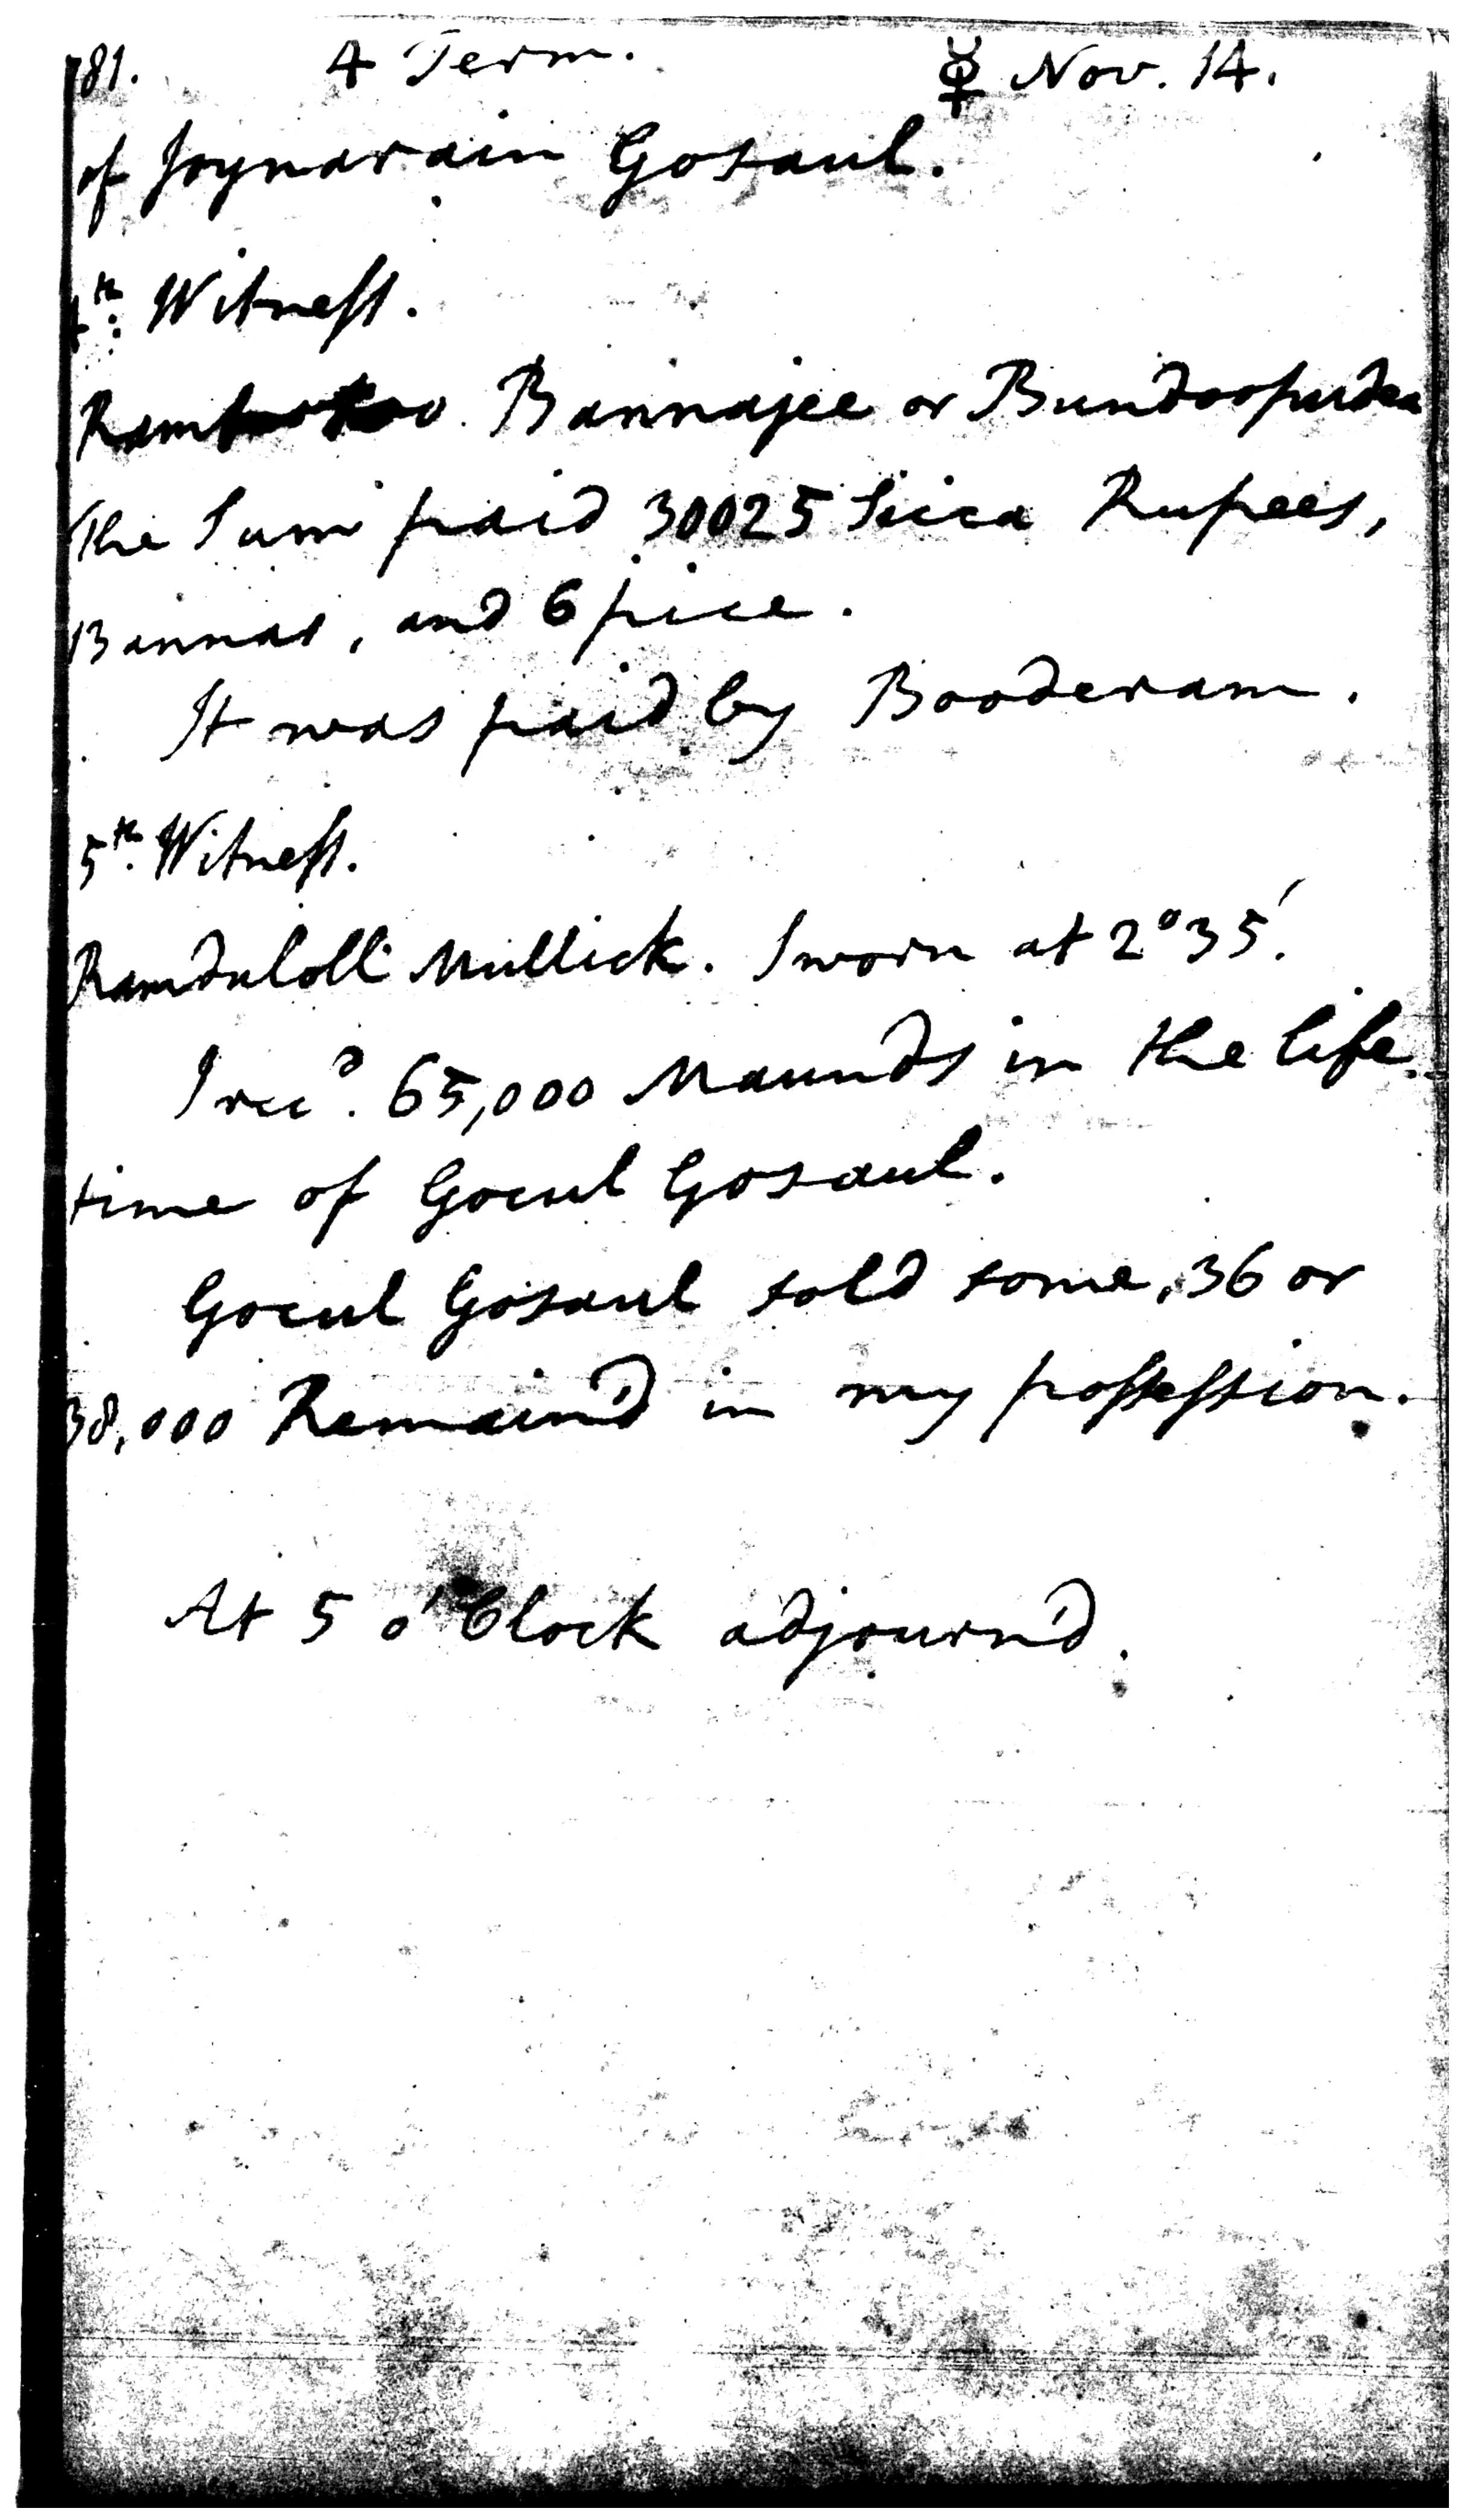 781. 4 Term. ☿ Nov. 14.
of Joynarain Gosaul.
4th. Witness.
Bannajee or
The Sum paid 30025 Sicca Rupees,
13 annas, and 6 pice.
It was paid by Booderam.
5th. Witness.
Ramduloll Mullick. Sworn at 2° 35'.
I recd. 65,000 Maunds in the life
time of Gocul Gosaul.
Gocul Gosaul sold some, 36 or
38,000 Remain'd in my possession.
At 5 o'Clock adjourn'd.